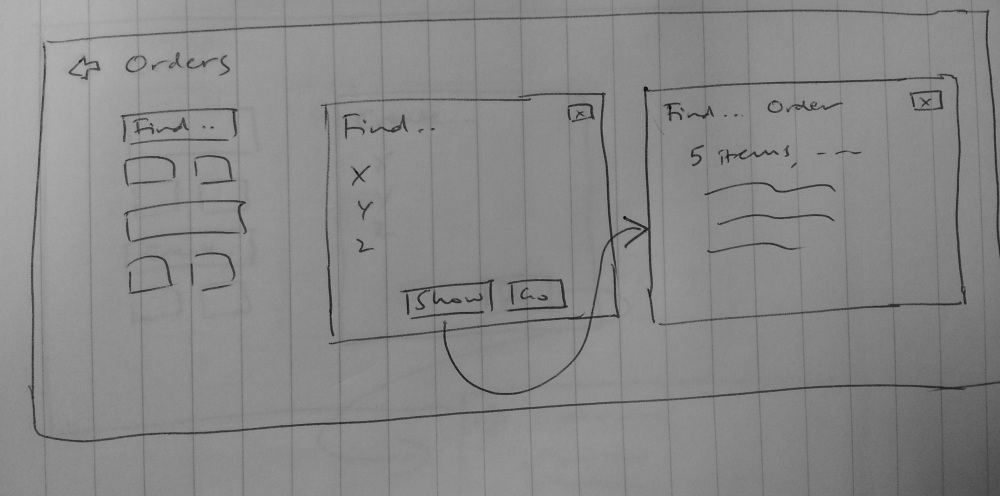 Orders
Find..
Find..
x
X
Y
Z
Show
Go
Find... Order
x
5 items,